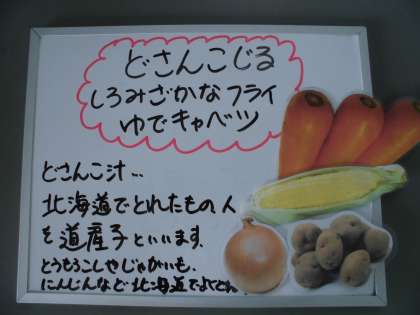 どさんこじる
しろみざかなフライ
ゆでキャベツ
どさんこ汁…
北海道でとれたもの、人
を道産子といいます。
とうもろこしやじゃがいも、
にんじんなど北海道でよくとれ